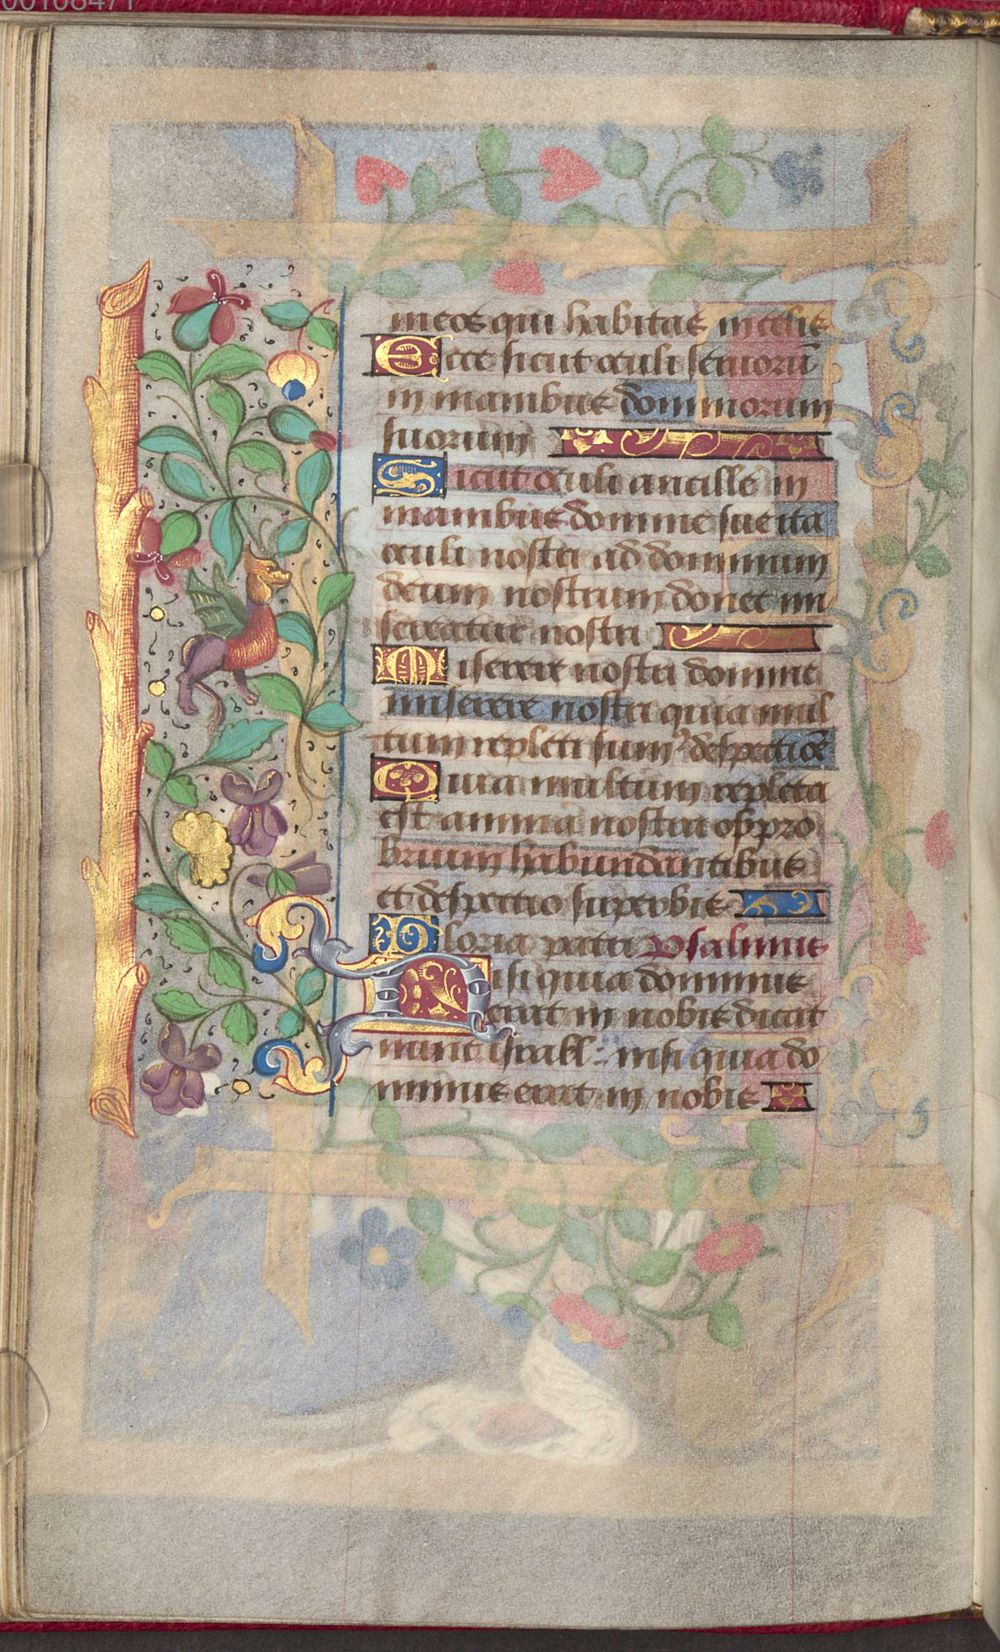 00108471
meos qui habitas in celis
Ecce sicut oculi seruorū
in manibus dominorum
suorum
Sicut oculi ancille in
manibus domine sue ita
oculi nostri ad dominum
deum nostrum donec mi
sereatur nostri
Miserere nostri domine
miserere nostri quia mul
tum repleti sumꝰ despectiōe
Quia multum repleta
est anima nostra oppro
brium habundantibus
et despectio superbis
Gloria patri Psalmus
Nisi quia dominus
erat in nobis dicat
nunc israhl: nisi quia do
minus erat in nobis